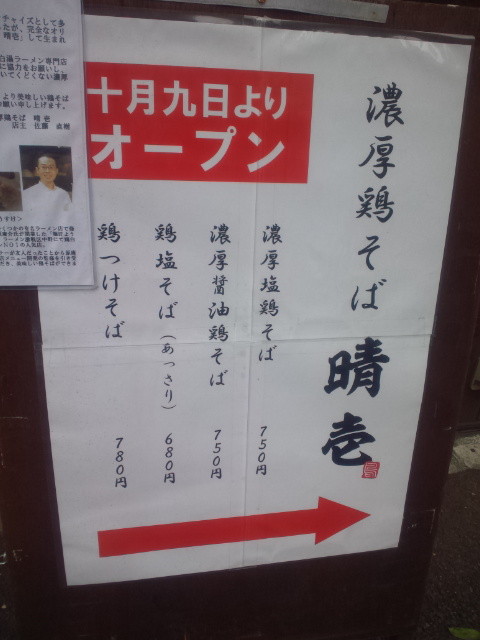 濃厚鶏そば 晴壱
十月九日より
オープン
濃厚塩鶏そば 750円
濃厚醤油鶏そば 750円
鶏塩そば(あっさり) 680円
鶏つけそば 780円
チャイズとして多
たが、完全なオリ
晴壱」して生まれ
白湯ラーメン専門店
に協力をお願いし、
いてくどくない濃厚
より美味しい鶏そば
お願い申し上げます。
厚鶏そば 晴壱
店主 佐藤